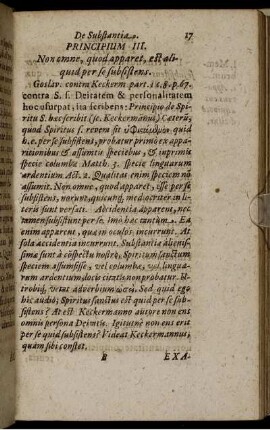 De Substantia. 17
PRINCIPIUM III.
Non omne, quod apparet, est ali-
quid per se subsistens.
Goslav. contra Keckerm. part. 1. c. 8. p. 67.
contra S. s. Deitatem & personalitatem
hoc usurpat, ita scribens: Principio de Spiri-
tu S. hæc scribit (se. Keckermānus) Caterũ,
quod Spiritus s. revera sit quid
h. e. per se subsistens, probatur primo ex ap-
paritionibus & assumtis speciebus, & inprimis
specie columbæ Matth. 3. specie linguarum
ardentium Act. 2. Qualitas enim speciem nō
assumit. Non omne, quod apparet, esse per se
subsistens, norunt, quicunq, mediocriter in li-
teris sunt versati. Accidentia apparent, nec
tamen subsistunt per se. Imò hæc tantum.
enim apparent, quæ in oculos incurrunt. At
sola accidentia incurrunt. Substantiæ alienis-
simæ sunt à cōspectu nostro, Spiritum sanctum
speciem assumsisse, vel columbæ, vel, lingua-
rum ardentium locis citatis non probatur. U-
trobiq, adverbium Sed, quid ego
hic audio; Spiritus sanctus est quid per se sub-
sistens? At est Keckermanno autore non ens
omnis persona Deitatis. Igitur ne non ens erit
per se quid subsistens? Videat Keckermannus,
quam sibi constet.
B EXA-